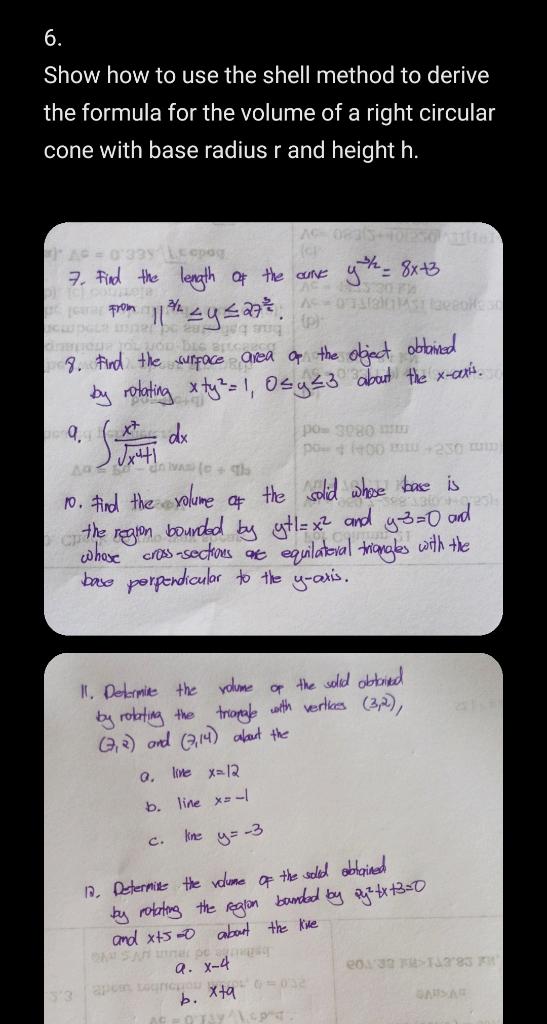 6.
Show how to use the shell method to derive
the formula for the volume of a right circular
cone with base radius r and height h.
7. Find the length of the curve y^3/2 = 8x+3
from 11^3/2 ≤ y ≤ 27^3/2.
8. Find the surface area of the object obtained
by rotating x+y² = 1, 0≤y≤3 about the x-axis.
9. ∫ x⁷/√(x⁴+1) dx
10. Find the volume of the solid whose base is
the region bounded by y+1 = x² and y-3=0 and
whose cross-sections are equilateral triangles with the
base perpendicular to the y-axis.
11. Determine the volume of the solid obtained
by rotating the triangle with vertices (3,2),
(7,2) and (7,14) about the
a. line x=12
b. line x=-1
c. line y=-3
12. Determine the volume of the solid obtained
by rotating the region bounded by 2y²+x+3=0
and x+5=0 about the line
a. x-4
b. x+9